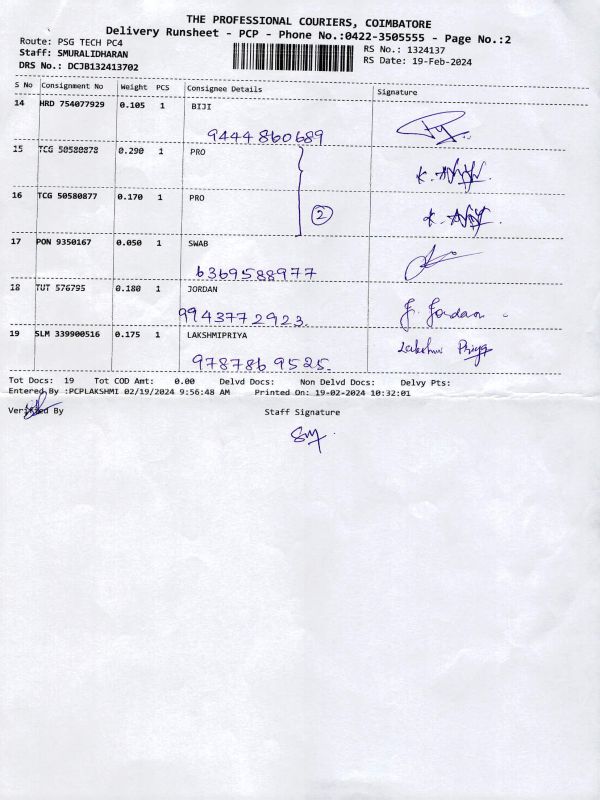 THE PROFESSIONAL COURIERS, COIMBATORE
Delivery Runsheet - PCP - Phone No.:0422-3505555 - Page No.:2
Route: PSG TECH PC4
RS No.: 1324137
Staff: SMURALIDHARAN
RS Date: 19-Feb-2024
DRS No.: DCJB132413702
S No Consignment No Weight PCS Consignee Details Signature
14 HRD 754077929 0.105 1 BIJI
9444860689
15 TCG 50580878 0.290 1 PRO
16 TCG 50580877 0.170 1 PRO
2
17 PON 9350167 0.050 1 SWAB
6369588977
18 TUT 576795 0.180 1 JORDAN
9943772923 J. Jordan
19 SLM 339900516 0.175 1 LAKSHMIPRIYA Lakshmi Priya
9787869525
Tot Docs: 19 Tot COD Amt: 0.00 Delvd Docs: Non Delvd Docs: Delvy Pts:
Entered By :PCPLAKSHMI 02/19/2024 9:56:48 AM Printed On: 19-02-2024 10:32:01
Verified By Staff Signature